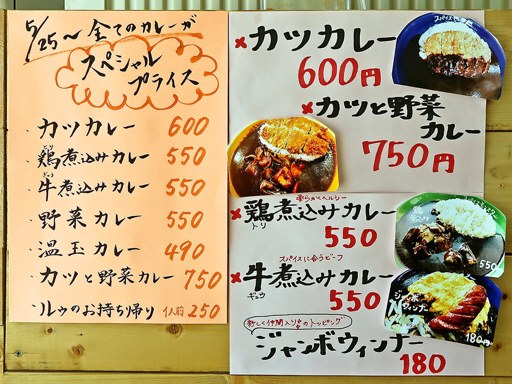 5/25～全てのカレーが
スペシャル
プライス
・カツカレー 600
・鶏煮込みカレー 550
・牛煮込みカレー 550
・野菜カレー 550
・温玉カレー 490
・カツと野菜カレー 750
・ルゥのお持ち帰り 1人前 250
カツカレー
600円
カツと野菜
カレー
750円
柔らかくヘルシー
鶏煮込みカレー
トリ
550
スパイスに合うビーフ
牛煮込みカレー
ギュウ
550
新しく仲間入り
ジャンボウィンナー
180
550
ジャンボ
ウィンナー
180